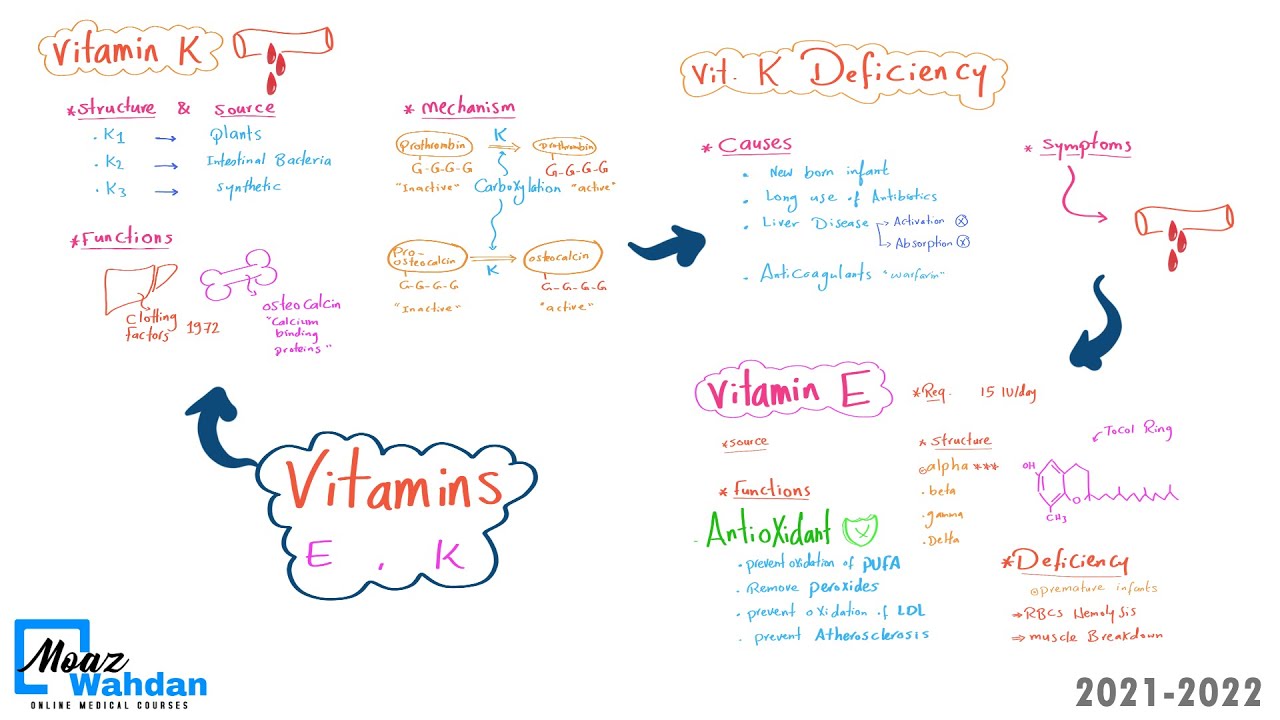 Vitamin K
* Structure & Source
. K1 → plants
. K2 → Intestinal Bacteria
. K3 → synthetic
* Functions
Clotting
factors 1972
osteocalcin
"Calcium
binding
proteins"
* mechanism
Prothrombin K prothrombin
G-G-G-G G-G-G-G
"Inactive" Carboxylation "active"
Pro-
osteocalcin K osteocalcin
G-G-G-G G-G-G-G
"Inactive" "active"
Vitamins
E , K
Vit. K Deficiency
* Causes
. New born infant
. Long use of Antibiotics
. Liver Disease → Activation ⓧ
→ Absorption ⓧ
. Anticoagulants "warfarin"
* Symptoms
Vitamin E
* Req. 15 IU/day
* source
* functions
. Antioxidant
. prevent oxidation of PUFA
. Remove peroxides
. prevent oxidation of LDL
. prevent Atherosclerosis
* structure
alpha ***
. beta
. gamma
. Delta
Tocol Ring
OH
O
CH3
* Deficiency
premature infants
→ RBCs Hemolysis
⇒ muscle Breakdown
Moaz
Wahdan
ONLINE MEDICAL COURSES
2021-2022